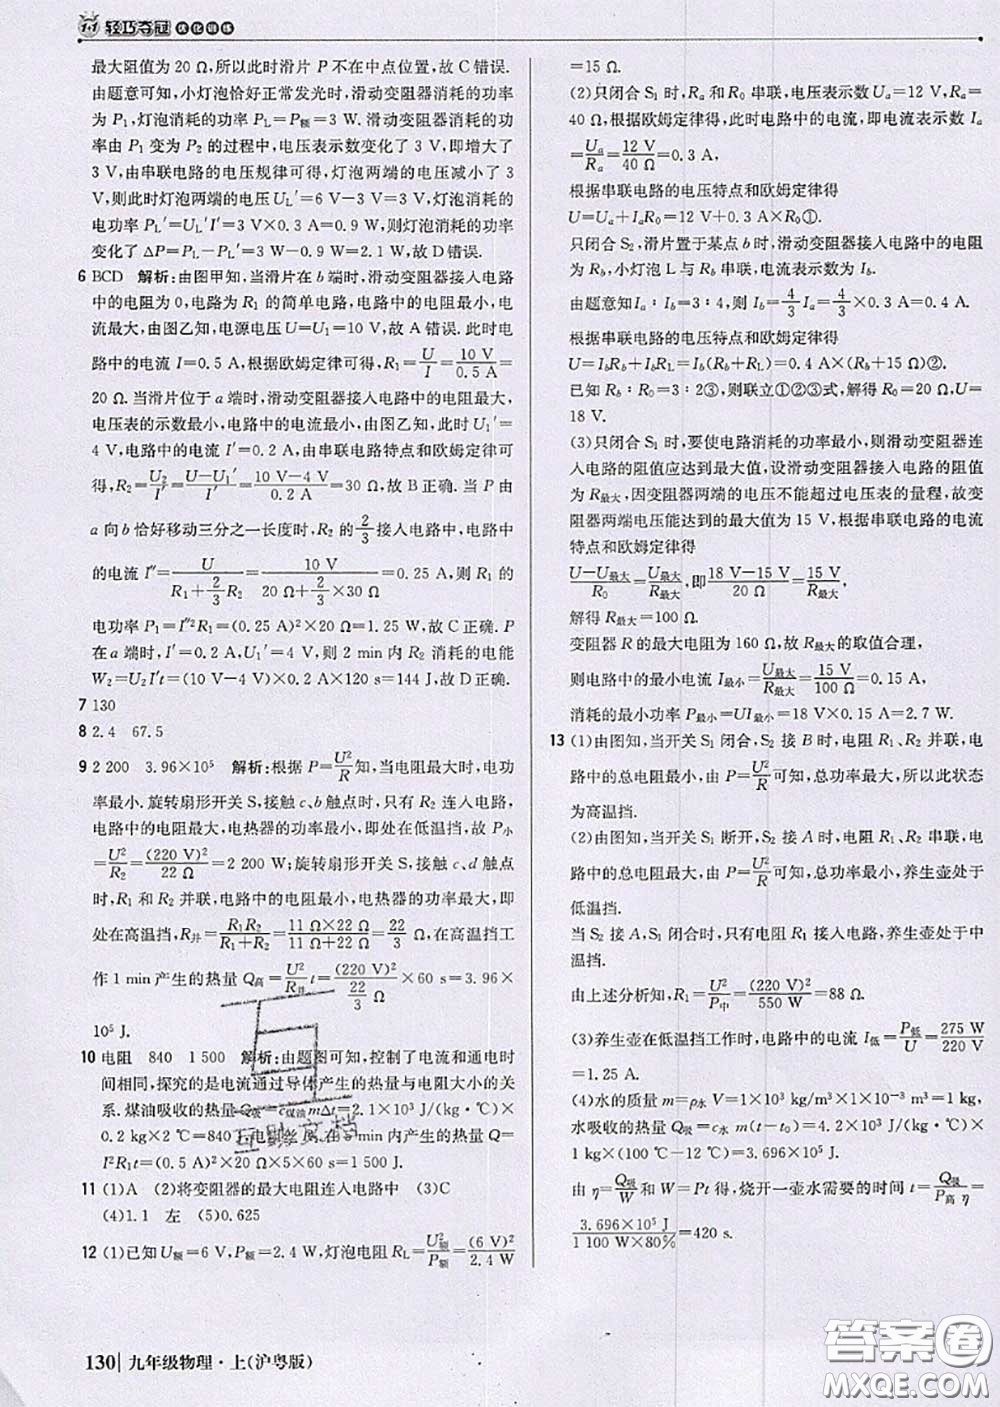 1+1 轻巧夺冠 优化训练
最大阻值为 20 Ω,所以此时滑片 P 不在中点位置,故 C 错误.
由题意可知,小灯泡恰好正常发光时,滑动变阻器消耗的功率
为 P₁,灯泡消耗的功率 P_L=P额=3 W.滑动变阻器消耗的功
率由 P₁ 变为 P₂ 的过程中,电压表示数变化了 3 V,即增大了
3 V,由串联电路的电压规律可得,灯泡两端的电压减小了 3
V,则此时灯泡两端的电压 U_L′=6 V-3 V=3 V,灯泡消耗的
电功率 P_L′=U_L′I′=3 V×0.3 A=0.9 W,则灯泡消耗的功率
变化了 ΔP=P_L-P_L′=3 W-0.9 W=2.1 W,故 D 错误.
6 BCD 解析:由图甲知,当滑片在 b 端时,滑动变阻器接入电路
中的电阻为 0,电路为 R₁ 的简单电路,电路中的电阻最小,电
流最大,由图乙知,电源电压 U=U₁=10 V,故 A 错误.此时电
路中的电流 I=0.5 A,根据欧姆定律可得,R₁=U/I=10 V/0.5 A=
20 Ω.当滑片位于 a 端时,滑动变阻器接入电路中的电阻最大,
电压表的示数最小,电路中的电流最小,由图乙知,此时 U₁′=
4 V,电路中的电流 I′=0.2 A,由串联电路特点和欧姆定律可
得,R₂=U₂/I′=(U-U₁′)/I′=(10 V-4 V)/0.2 A=30 Ω,故 B 正确.当 P 由
a 向 b 恰好移动三分之一长度时,R₂ 的 2/3 接入电路中,电路中
的电流 I″=U/(R₁+2/3R₂)=10 V/(20 Ω+2/3×30 Ω)=0.25 A,则 R₁ 的
电功率 P₁=I″²R₁=(0.25 A)²×20 Ω=1.25 W,故 C 正确.P
在 a 端时,I′=0.2 A,U₁′=4 V,则 2 min 内 R₂ 消耗的电能
W₂=U₂I′t=(10 V-4 V)×0.2 A×120 s=144 J,故 D 正确.
7 130
8 2.4 67.5
9 2 200 3.96×10⁵ 解析:根据 P=U²/R知,当电阻最大时,电功
率最小.旋转扇形开关 S,接触 c、b 触点时,只有 R₂ 连入电路,
电路中的电阻最大,电热器的功率最小,即处在低温挡,故 P小
=U²/R₂=(220 V)²/22 Ω=2 200 W;旋转扇形开关 S,接触 c、d 触点
时,R₁、R₂ 并联,电路中的电阻最小,电热器的功率最大,即
处在高温挡,R并=R₁R₂/(R₁+R₂)=(11 Ω×22 Ω)/(11 Ω+22 Ω)=22/3 Ω,在高温挡工
作 1 min 产生的热量 Q高=U²/R并 t=(220 V)²/(22/3 Ω)×60 s=3.96×
10⁵ J.
10 电阻 840 1 500 解析:由题图可知,控制了电流和通电时
间相同,探究的是电流通过导体产生的热量与电阻大小的关
系.煤油吸收的热量 Q吸=c煤油mΔt=2.1×10³ J/(kg·℃)×
0.2 kg×2℃=840 J,电阻丝 产生的热量 Q=
I²R₁t=(0.5 A)²×20 Ω×5×60 s=1 500 J.
11 (1)A (2)将变阻器的最大电阻连入电路中 (3)C
(4)1.1 左 (5)0.625
12 (1)已知 U额=6 V,P额=2.4 W,灯泡电阻 R_L=U额²/P额=(6 V)²/2.4 W
=15 Ω.
(2)只闭合 S₁ 时,Rₐ 和 R₀ 串联,电压表示数 Uₐ=12 V,Rₐ=
40 Ω,根据欧姆定律得,此时电路中的电流,即电流表示数 Iₐ
=Uₐ/Rₐ=12 V/40 Ω=0.3 A,
根据串联电路的电压特点和欧姆定律得
U=Uₐ+IₐR₀=12 V+0.3 A×R₀①.
只闭合 S₂,滑片置于某点 b 时,滑动变阻器接入电路中的电阻
为 R_b,小灯泡 L 与 R_b 串联,设电流表示数为 I_b,
由题意知Iₐ∶I_b=3∶4,则 I_b=4/3 Iₐ=4/3×0.3 A=0.4 A.
根据串联电路的电压特点和欧姆定律得
U=I_bR_b+I_bR_L=I_b(R_b+R_L)=0.4 A×(R_b+15 Ω)②.
已知 R_b∶R₀=3∶2③,则联立①②③式,解得 R₀=20 Ω,U=
18 V.
(3)只闭合 S₁ 时,要使电路消耗的功率最小,则滑动变阻器连
入电路的阻值应达到最大值,设滑动变阻器接入电路的阻值
为 R最大,因变阻器两端的电压不能超过电压表的量程,故变
阻器两端电压能达到的最大值为 15 V,根据串联电路的电流
特点和欧姆定律得
(U-U最大)/R₀=U最大/R最大,即(18 V-15 V)/20 Ω=15 V/R最大,
解得 R最大=100 Ω.
变阻器 R 的最大电阻为 160 Ω,故 R最大的取值合理,
则电路中的最小电流 I最小=U最大/R最大=15 V/100 Ω=0.15 A,
消耗的最小功率 P最小=UI最小=18 V×0.15 A=2.7 W.
13 (1)由图知,当开关 S₁ 闭合,S₂ 接 B 时,电阻 R₁、R₂ 并联,电
路中的总电阻最小,由 P=U²/R可知,功率最大,所以此状态
为高温挡.
(2)由图知,当开关 S₁ 断开,S₂ 接 A 时,电阻 R₁、R₂ 串联,电
路中的总电阻最大,由 P=U²/R可知,功率最小,养生壶处于
低温挡.
当 S₂ 接 A,S₁ 闭合时,只有电阻 R₁ 接入电路,养生壶处于中
温挡.
由上述分析知,R₁=U²/P中=(220 V)²/550 W=88 Ω.
(3)养生壶在低温挡工作时,电路中的电流 I低=P低/U=275 W/220 V
=1.25 A.
(4)水的质量 m=ρ水 V=1×10³ kg/m³×1×10⁻³ m³=1 kg,
水吸收的热量 Q吸=c水 m(t-t₀)=4.2×10³ J/(kg·℃)×
1 kg×(100℃-12℃)=3.696×10⁵ J.
由 η=Q吸/W 和 W=Pt 得,烧开一壶水需要的时间 t=Q吸/(P高 η)=
3.696×10⁵ J/(1 100 W×80%)=420 s.
130 九年级物理·上(沪粤版)
答案圈
MXQE.COM